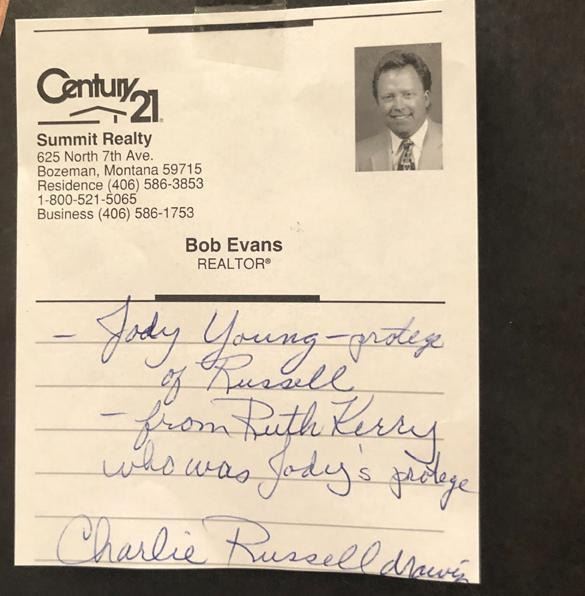 Century 21®
Summit Realty
625 North 7th Ave.
Bozeman, Montana 59715
Residence (406) 586-3853
1-800-521-5065
Business (406) 586-1753
Bob Evans
REALTOR®
- Jody Young - protege
of Russell
- from Ruth Kerry
who was Jody's protege
Charlie Russell drawin